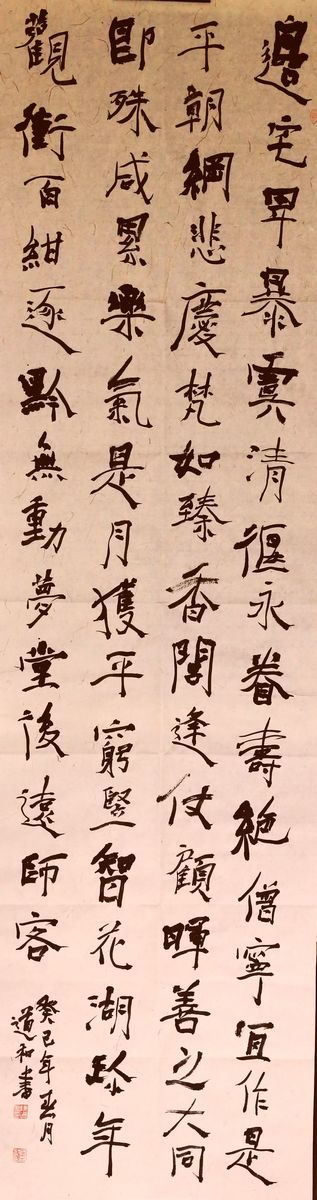 邊宅罕暴虞清偃永眷壽絶僧寧宜作是
平朝綱悲慶梵如臻香閣逢仗顧暉善之大同
即殊咸累樂氣是月獲平窮豎智花湖 年
觀衝百紺逐黔無動夢堂後遠師客
癸巳年春月
道和書